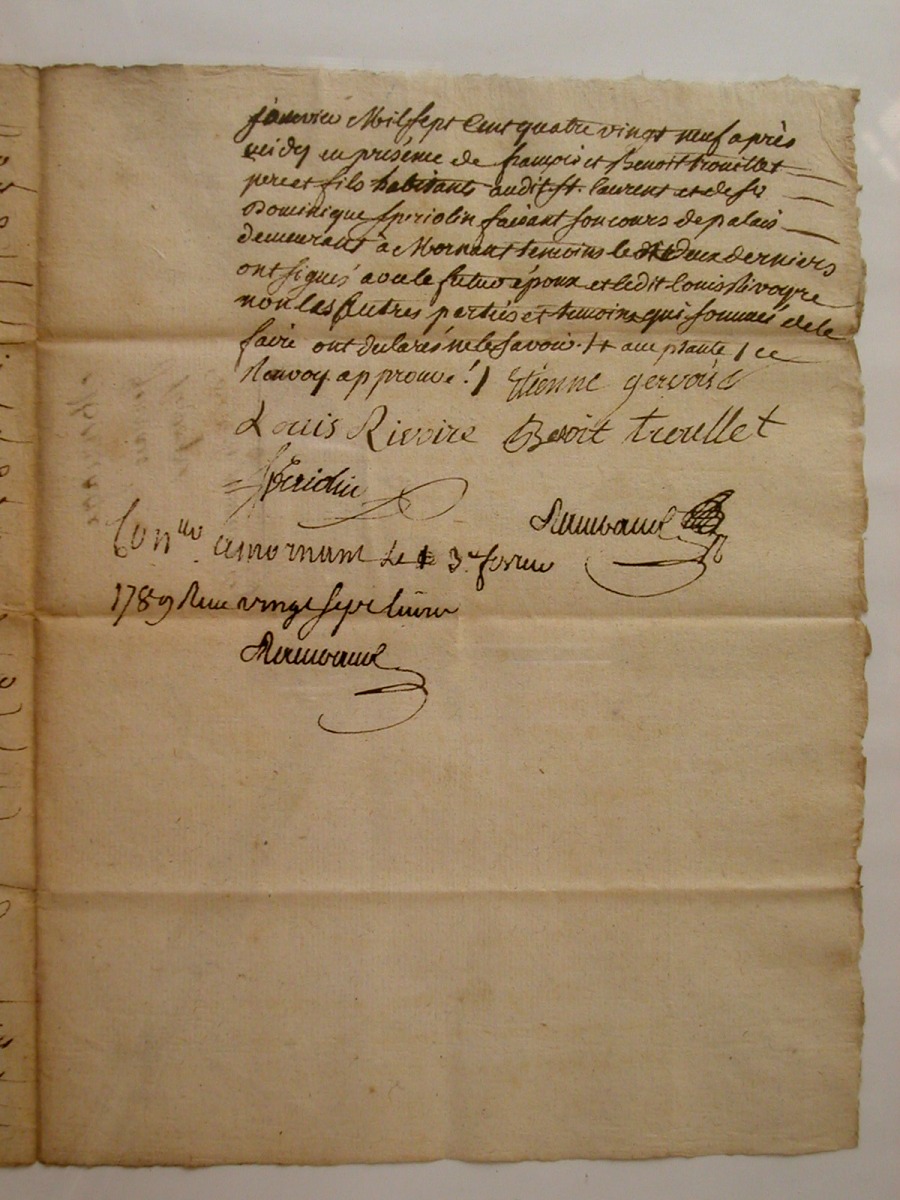 janvier Mil sept Cent quatre vingt neuf après
midy en présence de françois et Benoit trouillet
pere et fils habitants audit St. laurent et de Sr
Dominique Speriolin faisant son cours de palais
demeurant à Mornant temoins les deux derniers
ont signés avec le futur époux et ledit Louis Rivoyre
non les Autres parties et temoins qui sommés de le
faire ont declarés ne le savoir ./.
Renvoy approuvé ./ Etienne gervais
Louis Rivoire Benoit troullet
Rambaud
Con.lle a mornant Le 3e fevrier
1789 Reçu vingt sept livres
Rambaud